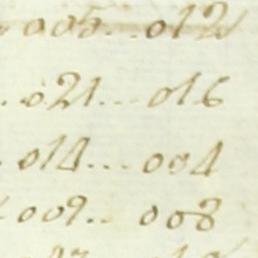 005...012
..021...016
.014...004
009.. 008